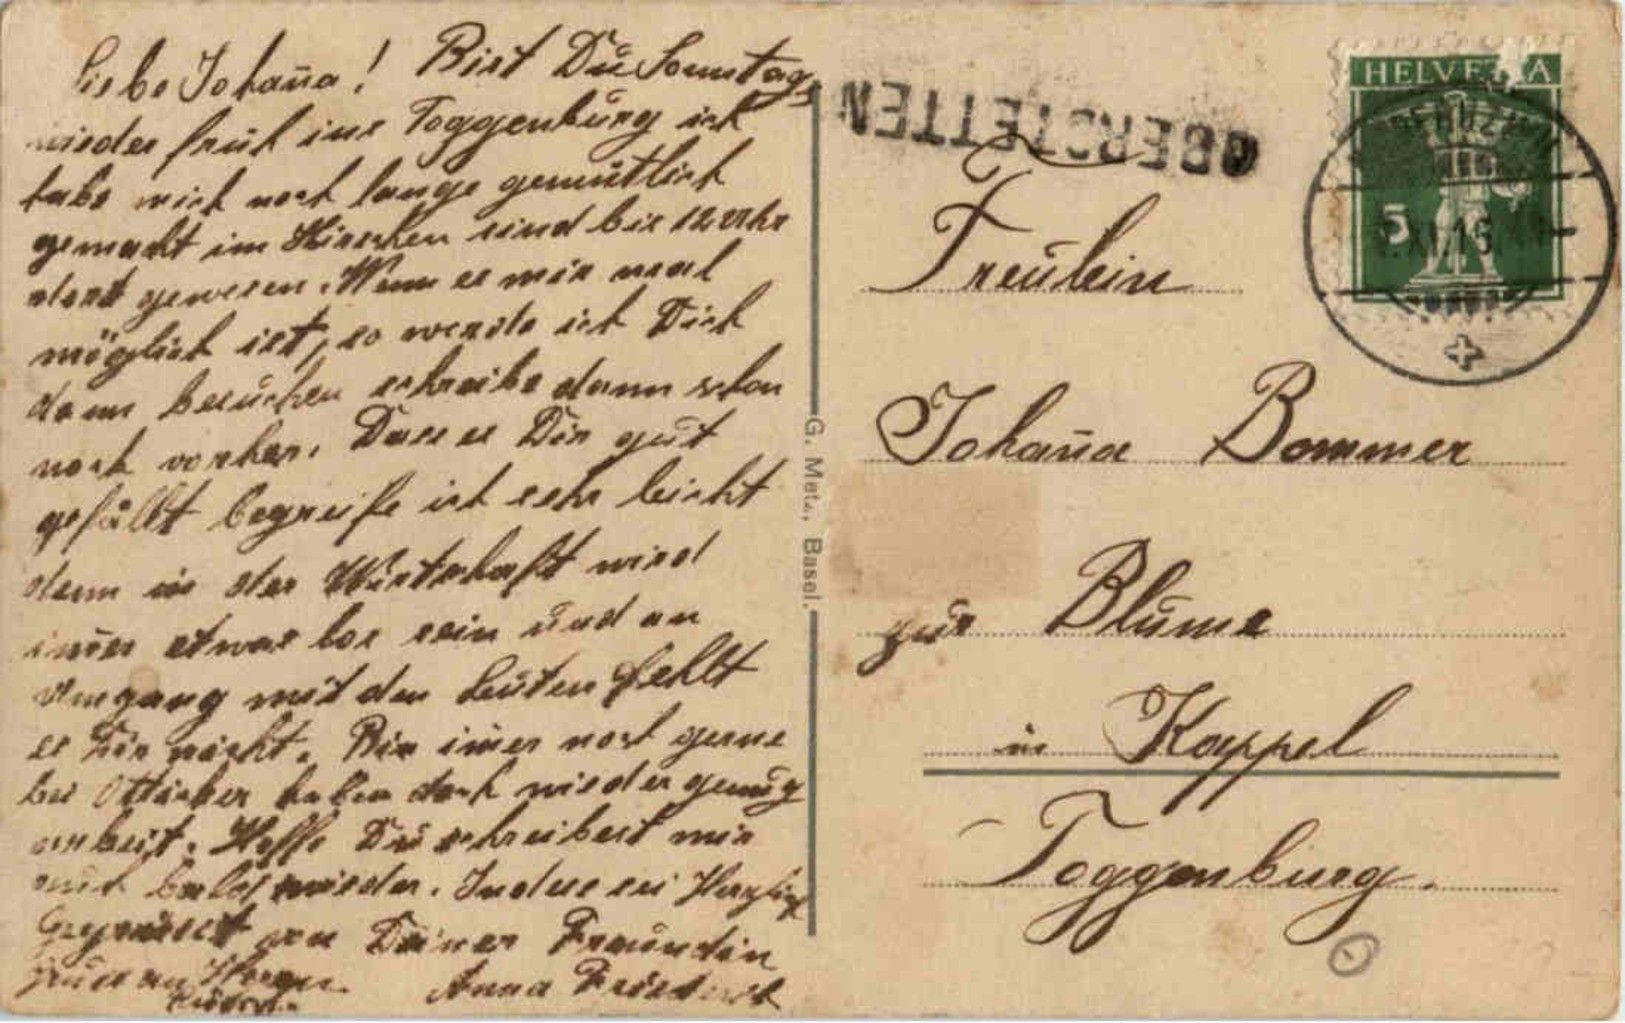 Liebe Johaña! Bist Du Sonntag,
wieder früh ins Toggenburg ich
habe mich noch lange gemütlich
gemacht im Hirschen sind bis 12 Uhr
dort gewesen. Wenn es mir mal
möglich ist, so werde ich Dich
dann besuchen schreibe dann schon
noch vorher. Dass es Dir gut
gefällt begreife ich sehr leicht
denn in der Wirtschaft wird
im̄er etwas los sein und an
Umgang mit den Leuten fehlt
es Dir nicht. Bin im̄er noch gerne
bei haben doch wieder genug
arbeit. Hoffe Du schreibest mir
auch bald wieder. Indes sei Herzlich
Gegrüsst von Deiner Freundin
Anna
G. Metz, Basel.
OBERSTETTEN
HELVETIA
5
Fräulein
Johaña Bommer
zur Blume
in Kappel
Toggenburg.